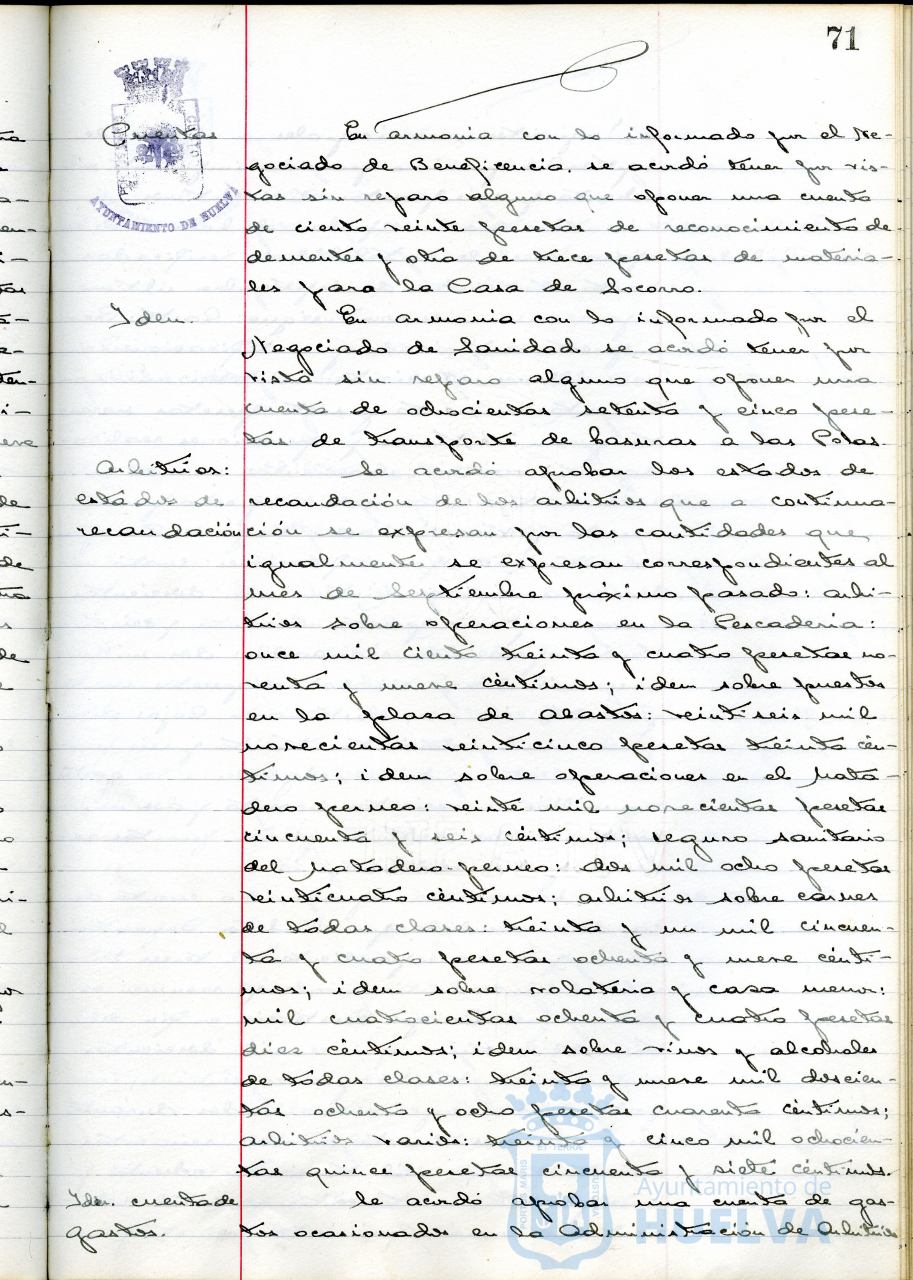 71
AYUNTAMIENTO DE HUELVA
Cuentas
En armonia con lo informado por el Ne-
gociado de Beneficencia, se acordó tener por vis-
tas sin reparo alguno que oponer una cuenta
de ciento veinte pesetas de reconocimiento de
dementes y otra de trece pesetas de materia-
les para la Casa de Socorro.
Idem.
En armonia con lo informado por el
Negociado de Sanidad se acordó tener por
vista sin reparo alguno que oponer una
cuenta de ochocientas setenta y cinco pese-
tas de transporte de basuras a las Potas.
Arbitrios:
estados de
recaudación
Se acordó aprobar los estados de
recaudación de los arbitrios que a continua-
ción se expresan por las cantidades que
igualmente se expresan correspondientes al
mes de Septiembre próximo pasado: arbi-
trios sobre operaciones en la Pescaderia:
once mil ciento treinta y cuatro pesetas no-
venta y nueve céntimos; idem sobre puestos
en la plaza de Abastos: veintiseis mil
novecientas veinticinco pesetas treinta cén-
timos; idem sobre operaciones en el Mata-
dero perneo: veinte mil novecientas pesetas
cincuenta y seis céntimos; seguro sanitario
del Matadero-perneo: dos mil ocho pesetas
veinticuatro céntimos; arbitrios sobre carnes
de todas clases: treinta y un mil cincuen-
ta y cuatro pesetas ochenta y nueve cénti-
mos; idem sobre volateria y caza menor:
mil cuatrocientas ochenta y cuatro pesetas
diez céntimos; idem sobre vinos y alcoholes
de todas clases: treinta y nueve mil doscien-
tas ochenta y ocho pesetas cuarenta céntimos;
arbitrios varios: treinta y cinco mil ochocien-
tas quince pesetas cincuenta y siete céntimos.
Idm. cuenta de
gastos.
Se acordó aprobar una cuenta de gas-
tos ocasionados en la Administración de Arbitrios
Ayuntamiento de
HUELVA